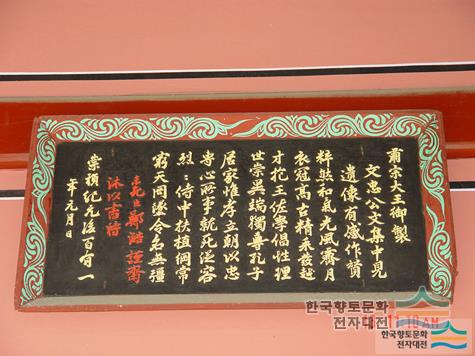 肅宗大王御製
文忠公文集中見
遺像有感作贊
粹然和氣光風霽月
衣冠高古精采發越
才挖王佐學倡性理
世崇異端獨尊孔子
居家惟孝立朝以忠
專心所事就死從容
烈〻侍中扶植綱常
窮天罔墜令名無疆
臣鄭澔謹齋
沐以書
崇禎紀元後百有一
年元月日
한국향토문화
전자대전
한국향토문화
전자대전